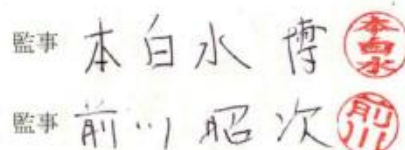 監事 本白水 博 本白水
監事 前川 昭次 前川